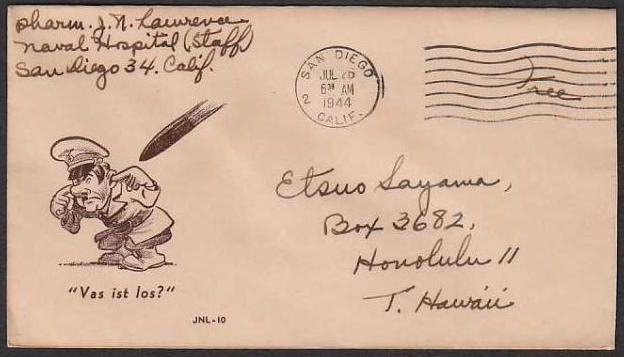 Pharm. J. N. Lawrence
Naval Hospital (Staff)
San Diego 34. Calif.
SAN DIEGO
JUL 26
6³⁰ AM
1944
2
CALIF.
Free
Etsuo Sayama,
Box 3682,
Honolulu 11
T. Hawaii
"Vas ist los?"
JNL-10